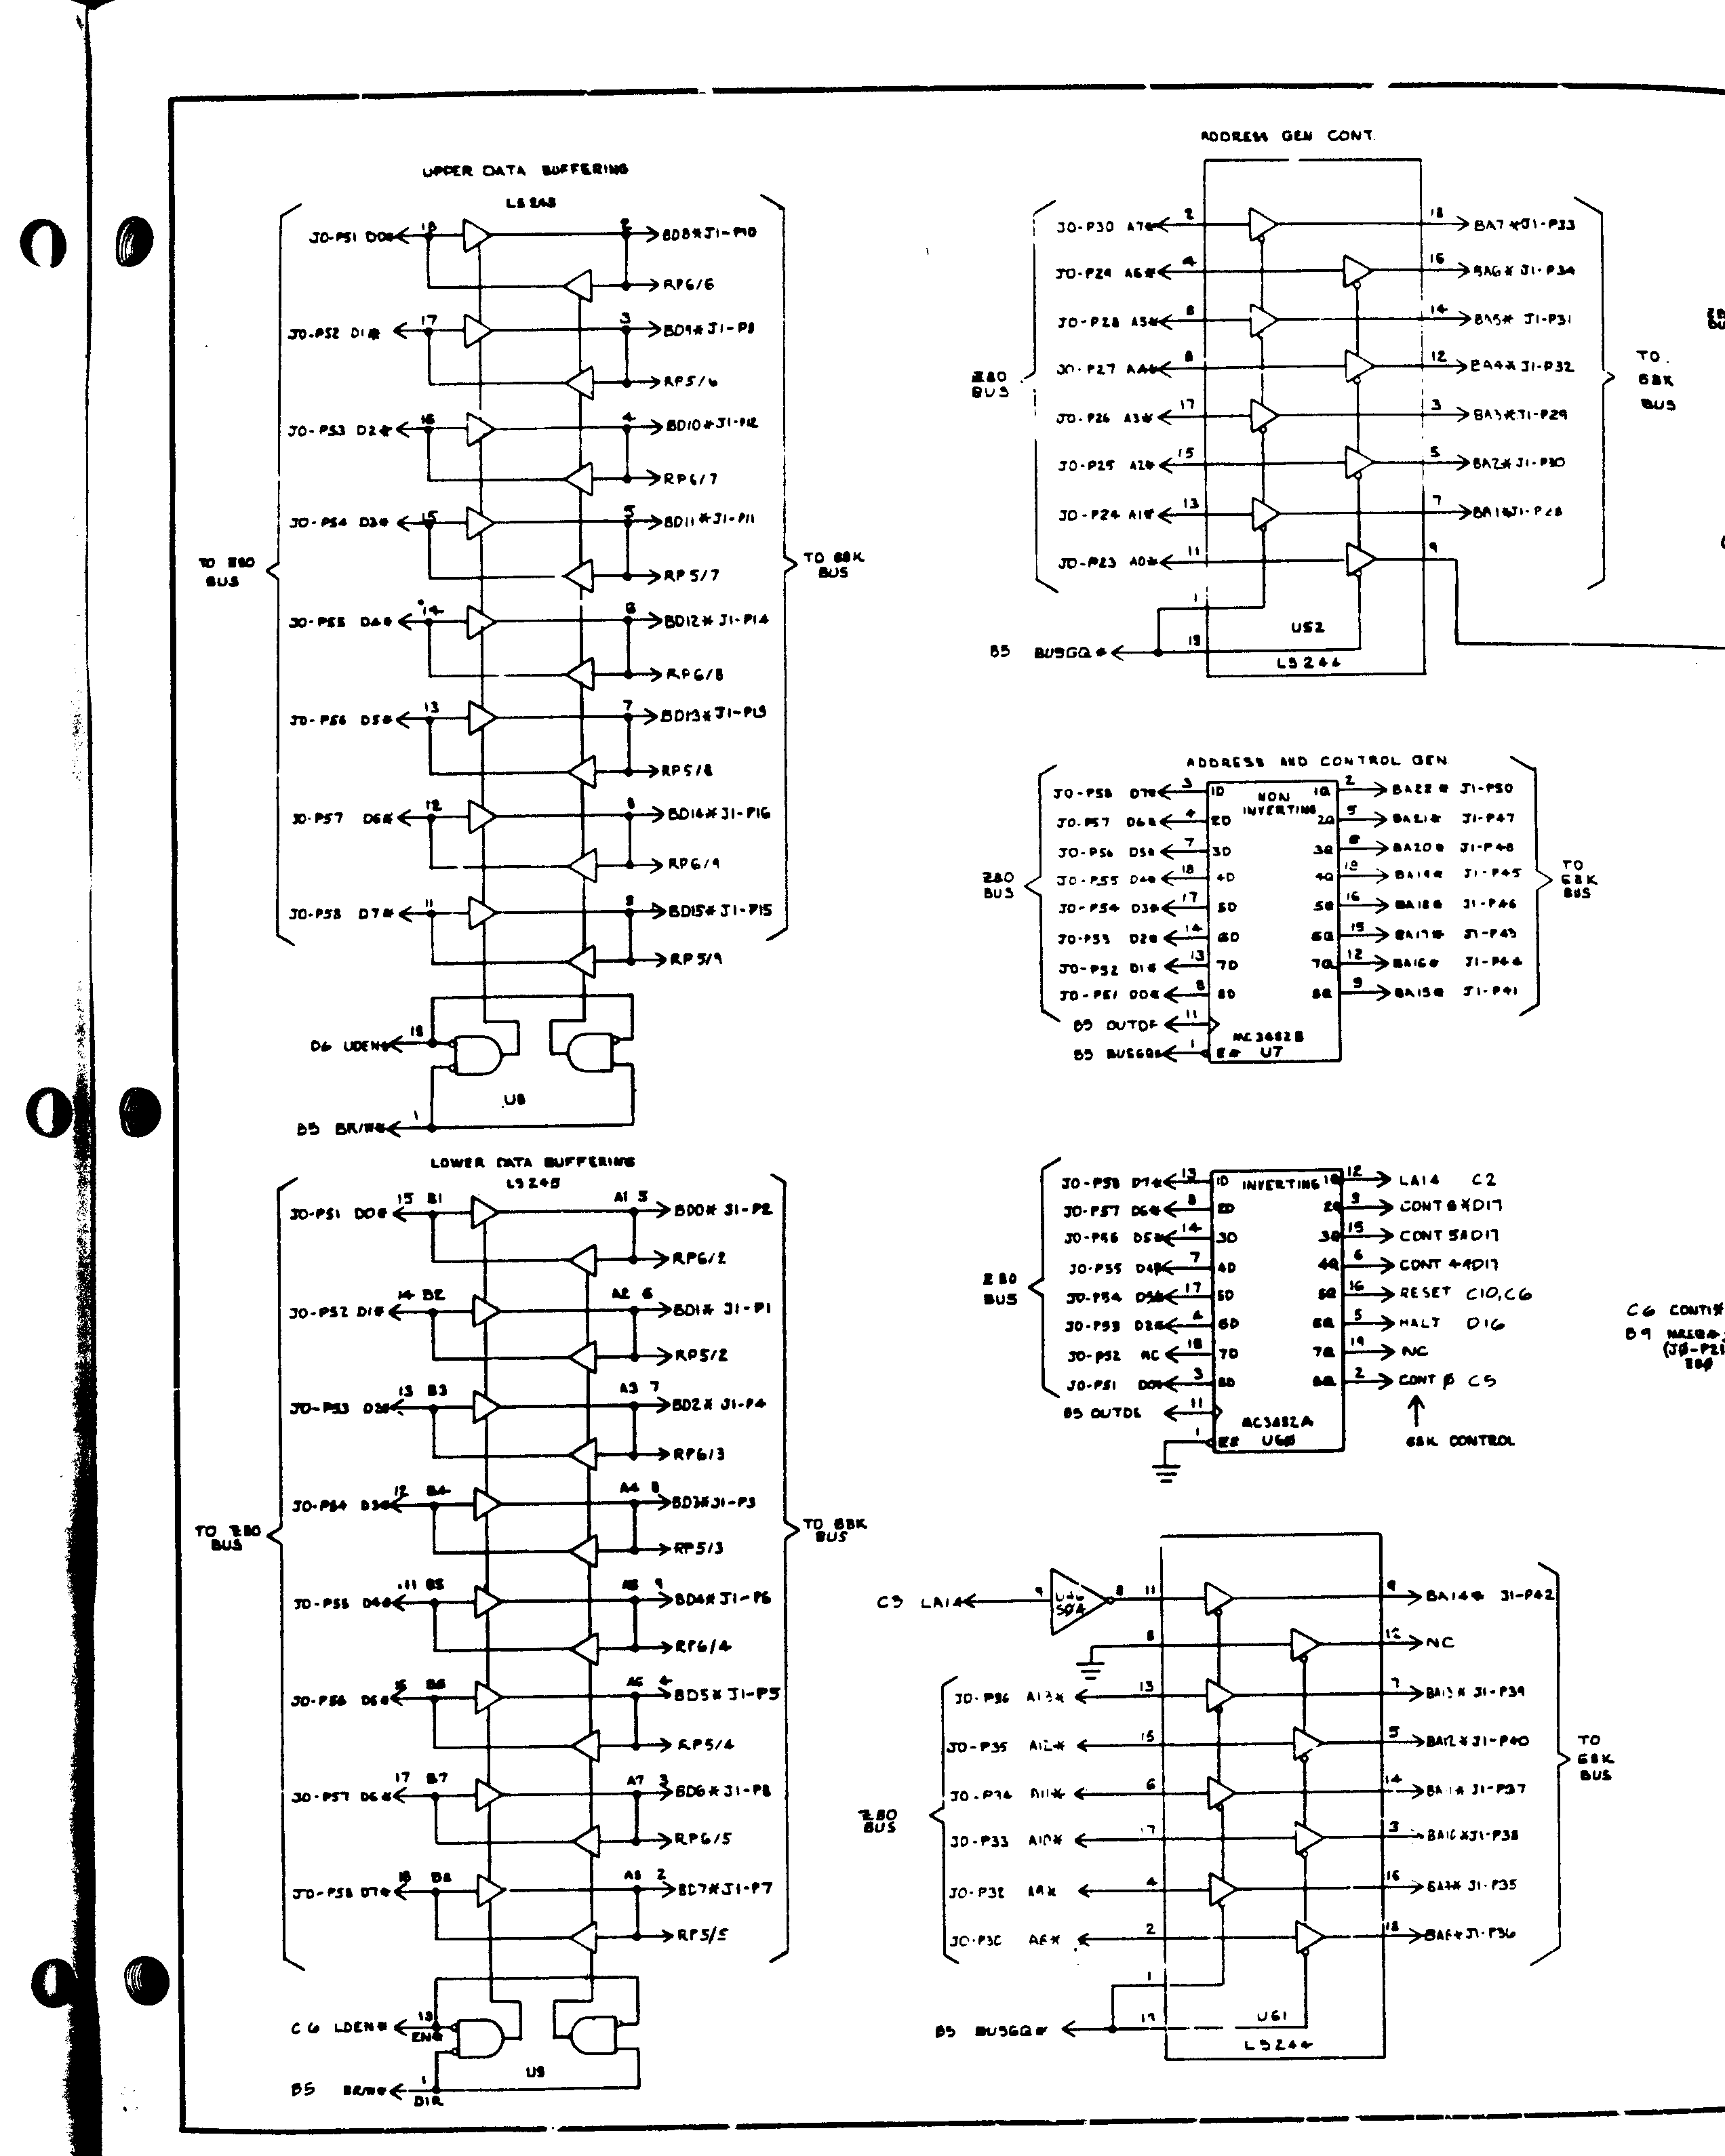 UPPER DATA BUFFERING
LS245
JO-P51 D0* 18 2 BD8* J1-P10
RP6/6
JO-P52 D1* 17 3 BD9* J1-P9
RP5/6
JO-P53 D2* 16 4 BD10* J1-P12
RP6/7
JO-P54 D3* 15 5 BD11* J1-P11
RP5/7
TO Z80 BUS
TO 68K BUS
JO-P55 D4* 14 6 BD12* J1-P14
RP6/8
JO-P56 D5* 13 7 BD13* J1-P13
RP5/8
JO-P57 D6* 12 8 BD14* J1-P16
RP6/9
JO-P58 D7* 11 9 BD15* J1-P15
RP5/9
D6 UDEN* 19
U8
B5 BR/W* 1
LOWER DATA BUFFERING
LS245
JO-P51 D0* 15 B1 A1 5 BD0* J1-P2
RP6/2
JO-P52 D1* 14 B2 A2 6 BD1* J1-P1
RP5/2
JO-P53 D2* 13 B3 A3 7 BD2* J1-P4
RP6/3
JO-P54 D3* 12 B4 A4 8 BD3* J1-P3
RP5/3
TO Z80 BUS
TO 68K BUS
JO-P55 D4* 11 B5 A5 9 BD4* J1-P6
RP6/4
JO-P56 D5* 16 B6 A6 4 BD5* J1-P5
RP5/4
JO-P57 D6* 17 B7 A7 3 BD6* J1-P8
RP6/5
JO-P58 D7* 18 B8 A8 2 BD7* J1-P7
RP5/5
C6 LDEN* 19
EN*
U9
B5 BR/W* 1
DIR
ADDRESS GEN CONT.
JO-P30 A7* 2 18 BA7* J1-P33
JO-P29 A6* 4 16 BA6* J1-P34
JO-P28 A5* 6 14 BA5* J1-P31
JO-P27 A4* 8 12 BA4* J1-P32
Z80 BUS
TO 68K BUS
JO-P26 A3* 17 3 BA3* J1-P29
JO-P25 A2* 15 5 BA2* J1-P30
JO-P24 A1* 13 7 BA1* J1-P28
JO-P23 A0* 11 9
1
U52
B5 BUSGQ* 19
LS244
ADDRESS AND CONTROL GEN.
JO-P58 D7* 3 1D NON INVERTING 1Q 2 BA22* J1-P50
JO-P57 D6* 4 2D 2Q 5 BA21* J1-P47
JO-P56 D5* 7 3D 3Q 6 BA20* J1-P48
JO-P55 D4* 18 4D 4Q 19 BA19* J1-P45
Z80 BUS
TO 68K BUS
JO-P54 D3* 17 5D 5Q 16 BA18* J1-P46
JO-P53 D2* 14 6D 6Q 15 BA17* J1-P43
JO-P52 D1* 13 7D 7Q 12 BA16* J1-P44
JO-P51 D0* 8 8D 8Q 9 BA15* J1-P41
B5 OUTDF 11
MC3482B
B5 BUSGQ* 1 U7
JO-P58 D7* 13 1D INVERTING 1Q 12 LA14 C2
JO-P57 D6* 8 2D 2Q 9 CONT 6* D17
JO-P56 D5* 14 3D 3Q 15 CONT 5* D17
JO-P55 D4* 7 4D 4Q 6 CONT 4* D17
Z80 BUS
JO-P54 D3* 17 5D 5Q 16 RESET C10,C6
JO-P53 D2* 4 6D 6Q 5 HALT D16
JO-P52 NC 18 7D 7Q 19 NC
JO-P51 D0* 3 8D 8Q 2 CONT Ø C5
B5 OUTDE 11
MC3482A
1 U6Ø
68K CONTROL
C6 CONT1*
B9
(JØ-P21
Z8Ø
C3 LA14 9 U46 SØ4 8 11 9 BA14* J1-P42
8 12 NC
JO-P36 A13* 13 7 BA13* J1-P39
JO-P35 A12* 15 5 BA12* J1-P40
JO-P34 A11* 6 14 BA11* J1-P37
Z80 BUS
TO 68K BUS
JO-P33 A10* 17 3 BA10* J1-P38
JO-P32 A9* 4 16 BA9* J1-P35
2 18 BA8* J1-P36
1
U61
B5 BUSGQ* 19
LS244